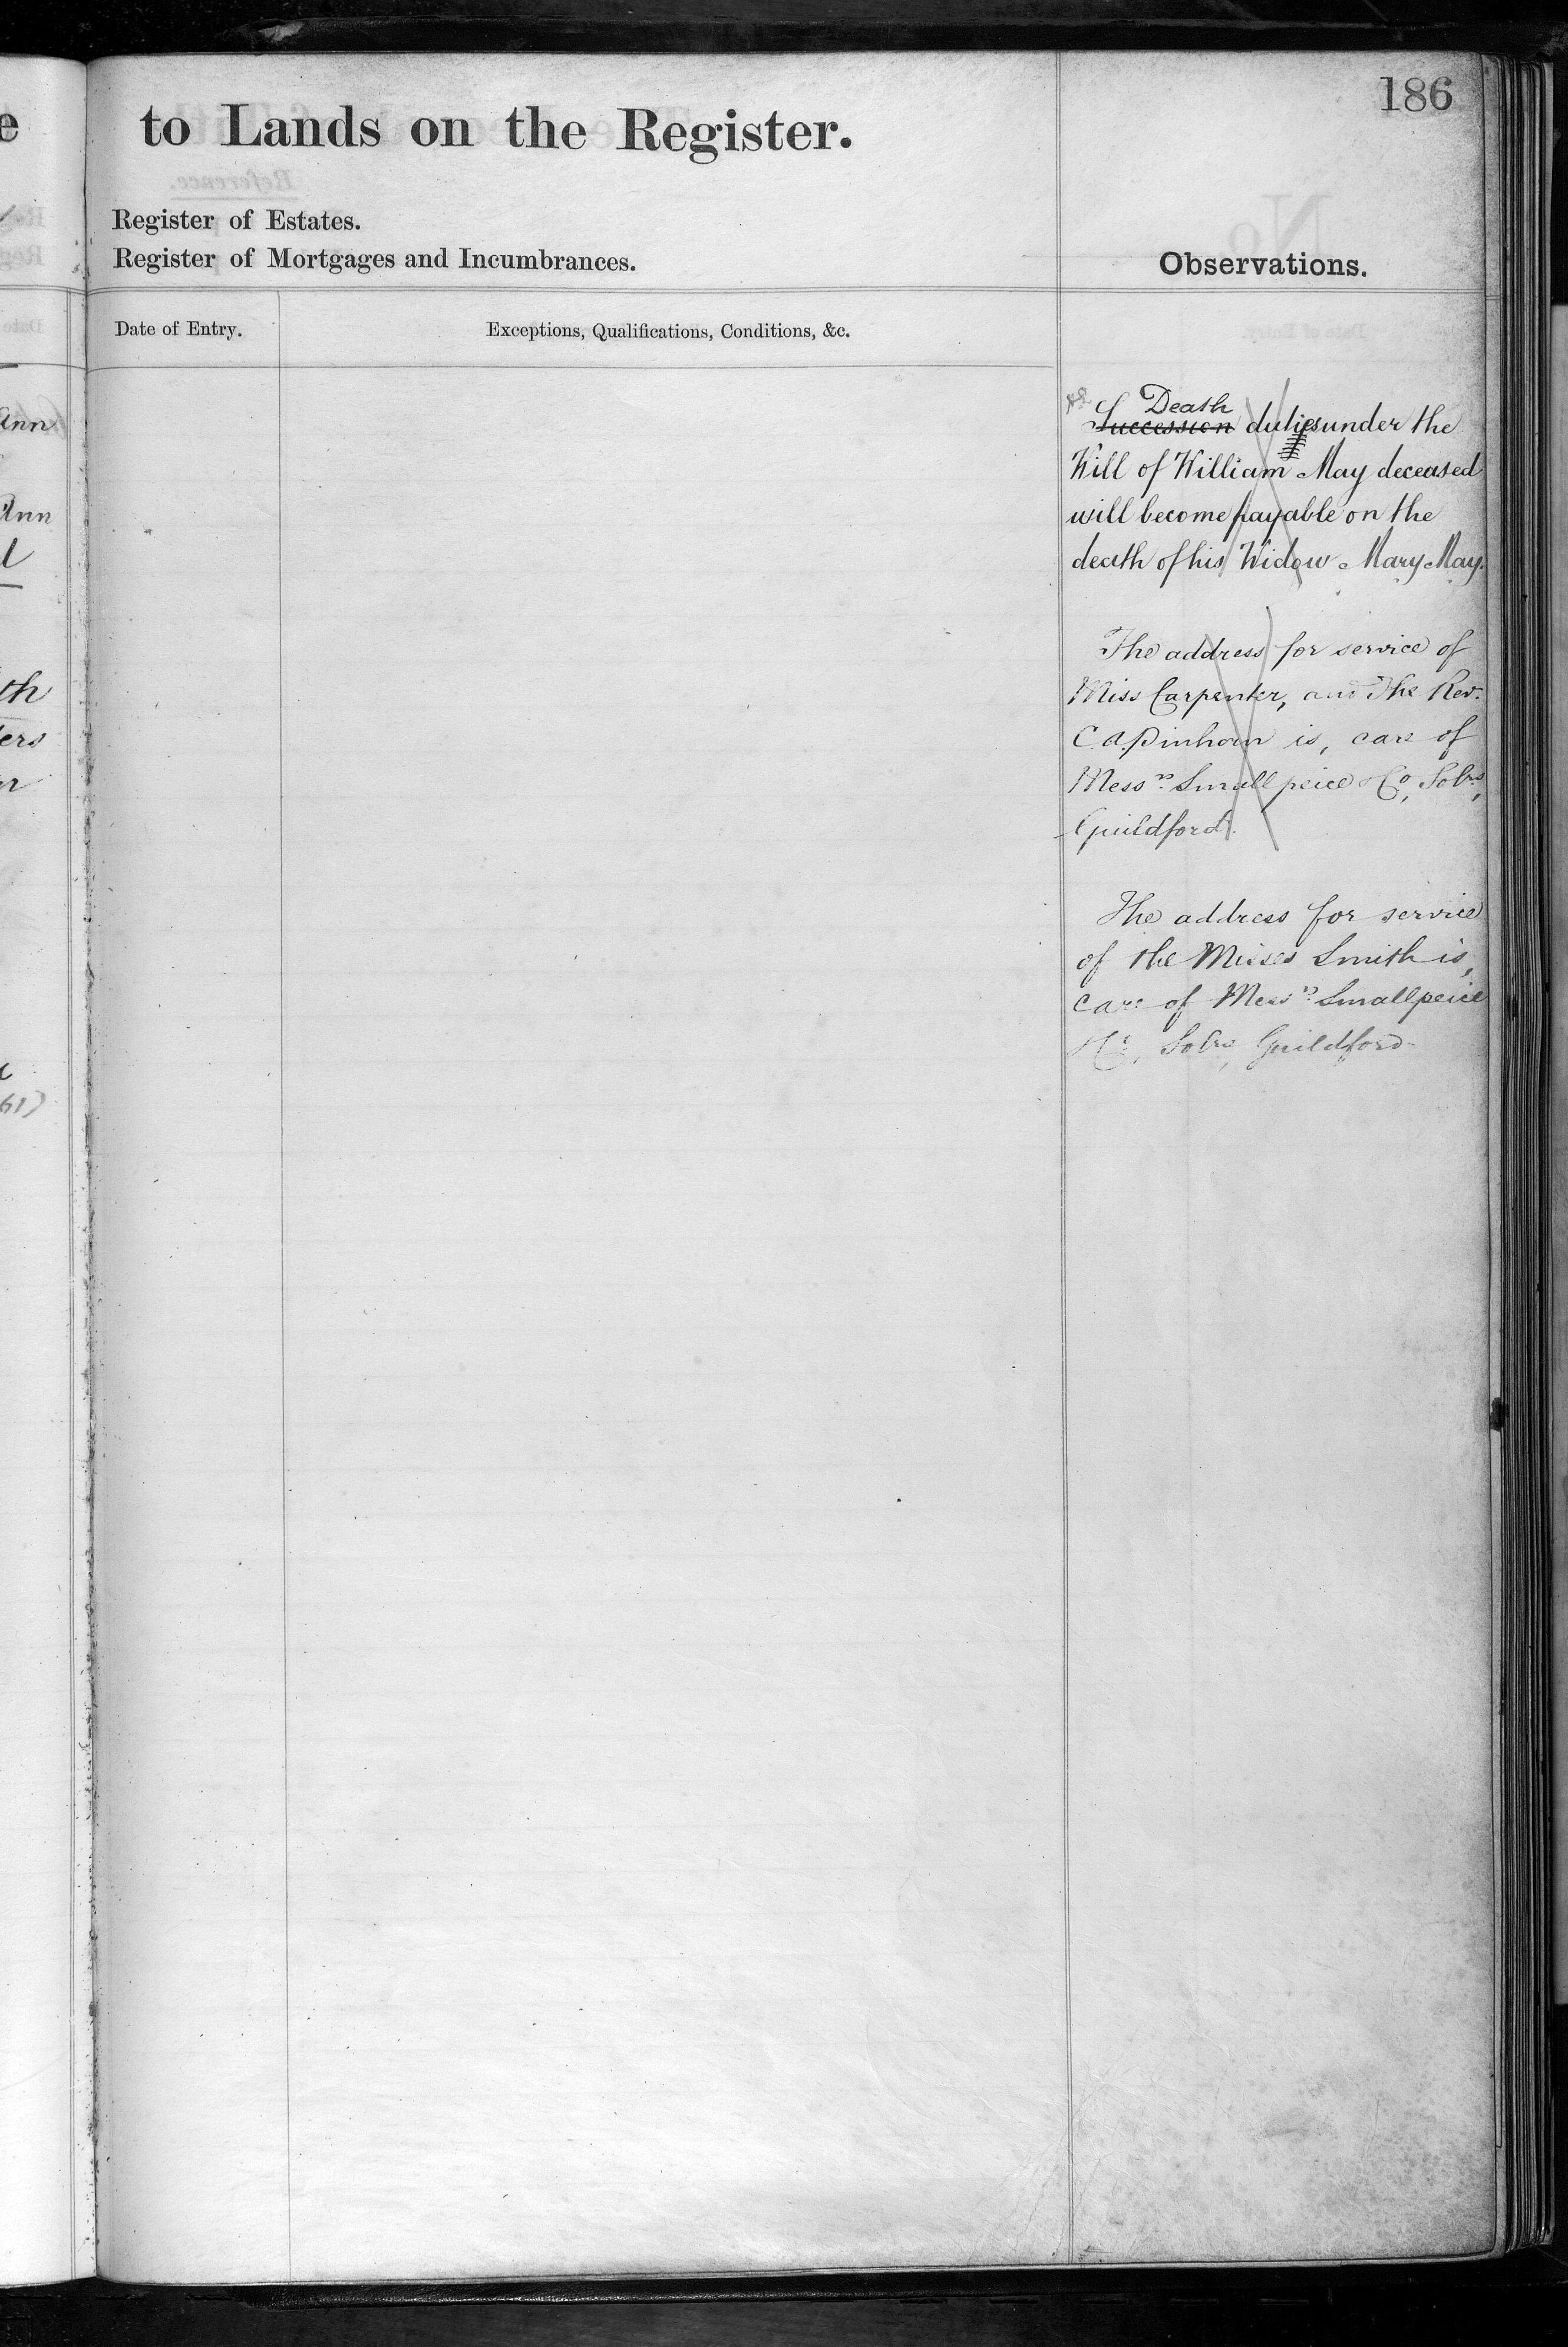 186
to Lands on the Register.
Register of Estates.
Register of Mortgages and Incumbrances.
Observations.
Date of Entry.
Exceptions, Qualifications, Conditions, &c.
Death
Succession duties under the
Will of William May deceased
will become payable on the
death of his Widow Mary May.
The address for service of
Miss Carpenter, and The Rev.
C. A. Pinhorn is, care of
Messrs. Smallpeice & Co, Solrs,
Guildford.
The address for service
of the Misses Smith is,
care of Messrs. Smallpeice
& Co, Solrs, Guildford
Ann
Ann
l
th
ers
61)